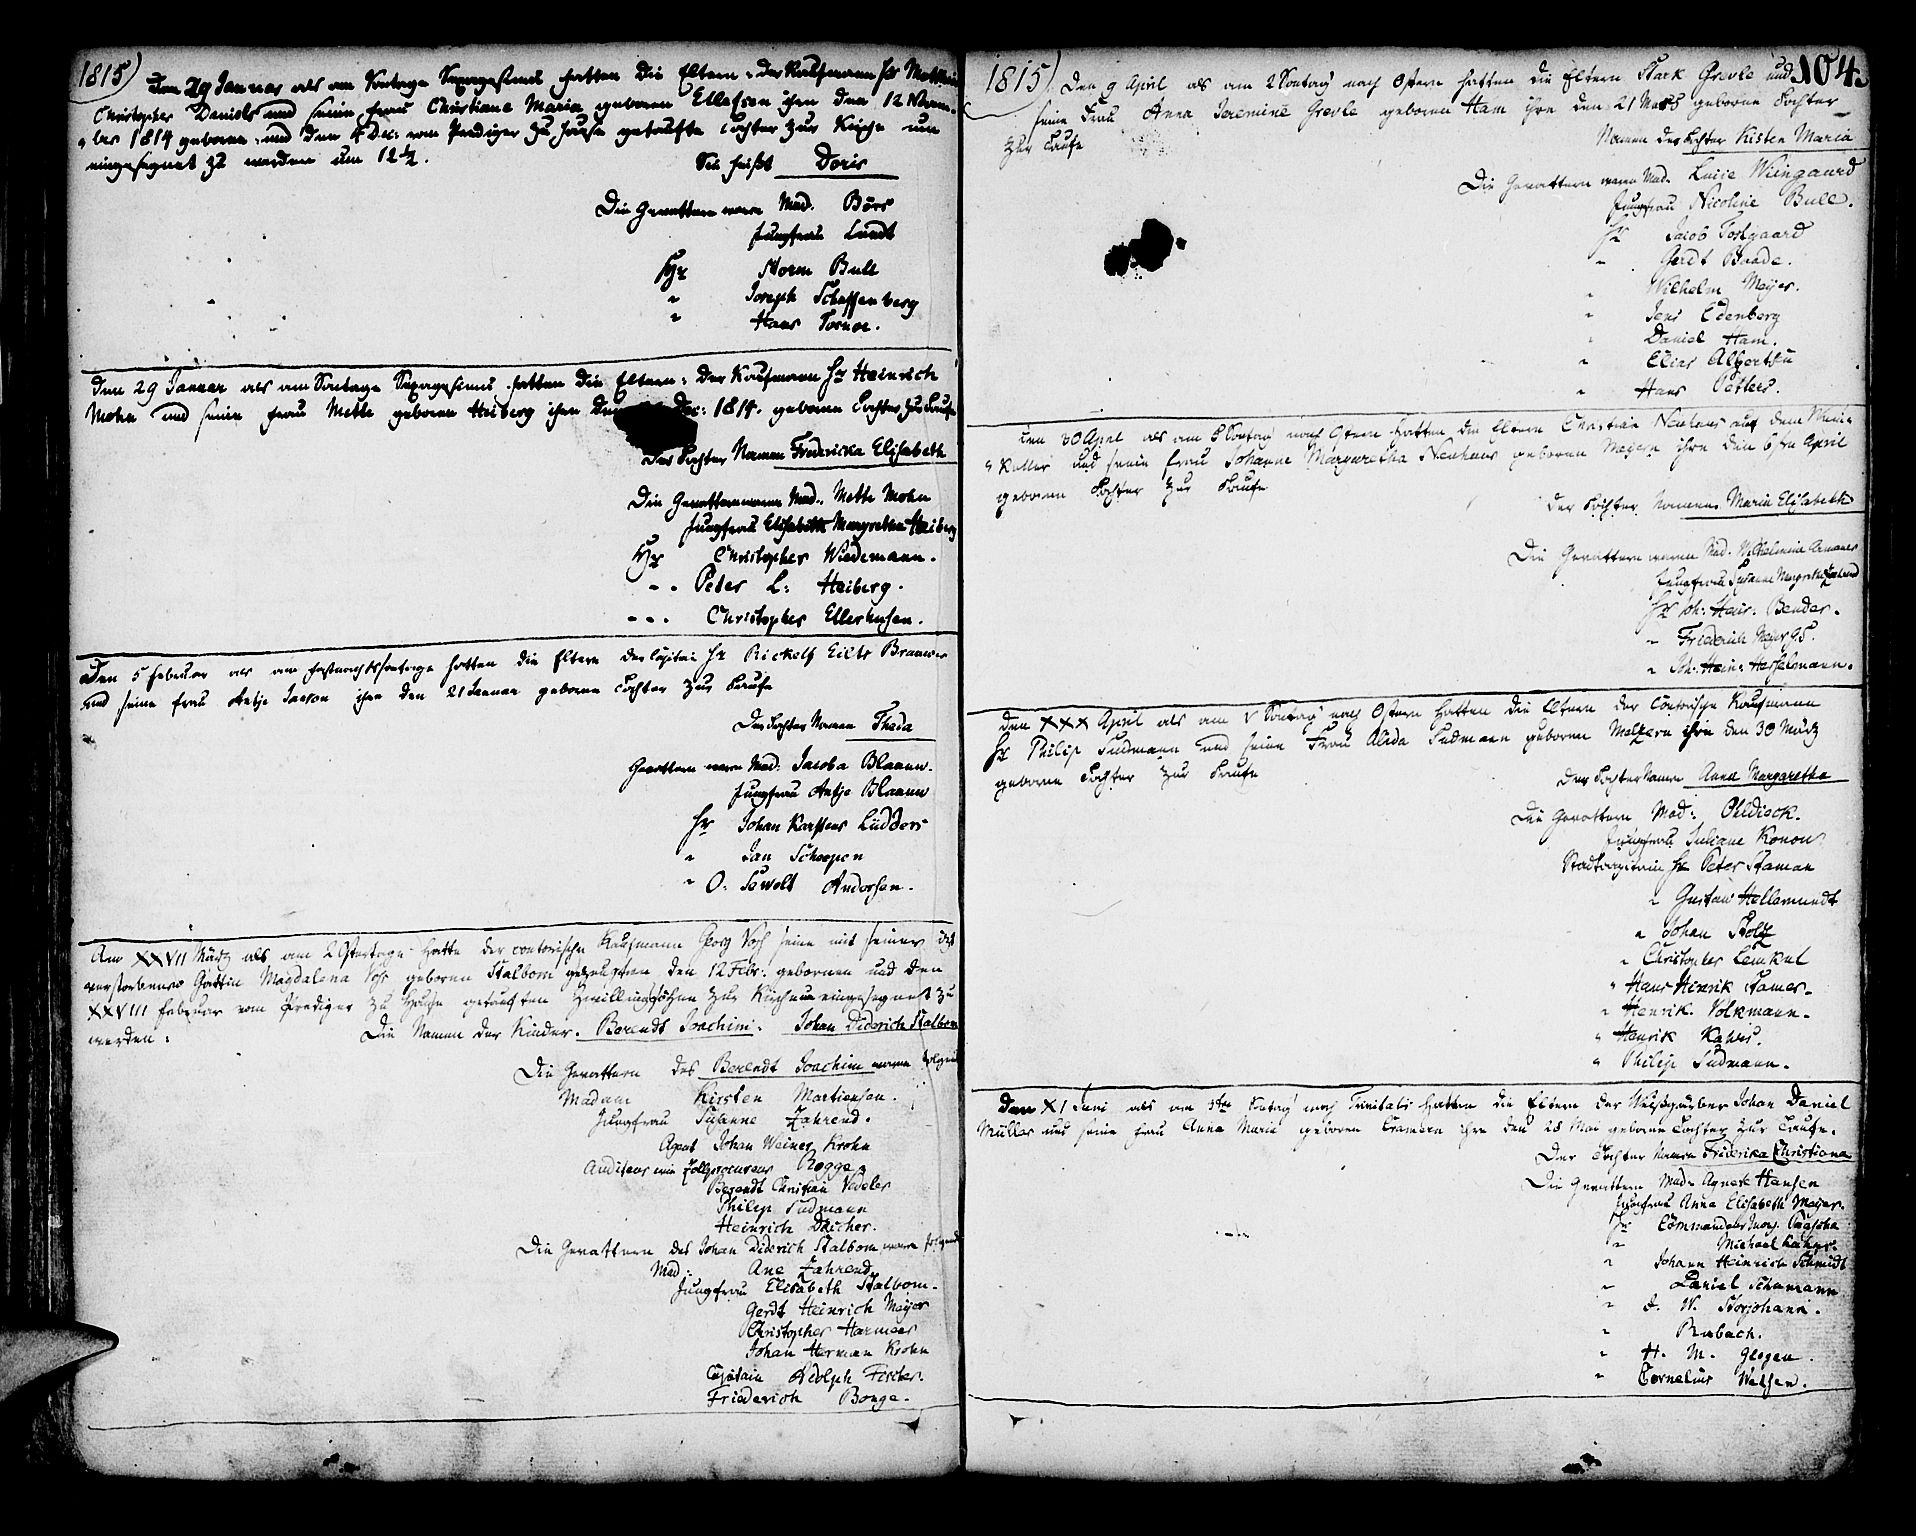 1815)
Den 29 Januar als am Sontage Sexagesima hatten die Eltern: der Kaufmann Hr
Christopher Daniels und seine Frau Christiane Maria geboren Ellefsen ihre den 12 Novem-
ber 1814 geborne, und den 4 Dec: vom Prediger zu Hause getaufte Tochter zur Kirche um
eingesegnet zu werden um 12½.
Sie heißt Doris
Die Gevattern waren Mad. Börs
Jungfrau Lundt
Hr Storm Bull
" Joseph Scheffenberg
" Hans
Den 29 Januar als am Sontage Sexagesima hatten die Eltern: der Kaufmann Hr Heinrich
Mohn und seine Frau Mette geboren Heiberg ihre den Dec: 1814. geborne Tochter zur Taufe
Der Tochter Namen Fredericka Elisabeth
Die Gevattern waren Mad. Mette Mohn
Jungfrau Elisabeth Margretha Heiberg
Hr Christopher Wiedemann.
" Peter L: Heiberg.
" Christopher Ellerhusen.
Den 5 Februar als am Fastnachtssontage hatten die Eltern der Capitai Hr Rickelf Eilts Brauwer
und seine Frau Antje Janson ihre den 21 Januar geborne Tochter zur Taufe
Der Tochter Namen Theda
Gevattern waren Mad: Jacoba Blaauw.
Jungfrau Antje Blaauw
Hr Johan Karstens Lüdders
" Jan Schoopen
" O: Sewolt Andersen.
Am XXVII März als am 2 Ostertage hatte der contorische Kaufmann Georg Voss seine mit seiner
verstorbenen Gattin Magdalena Voss geboren Stalbom gezeugten den 12 Febr: gebornen und den
XXVIII Februar vom Prediger zu Hause getauften Zwillingssöhne zur Kirche um eingesegnet zu
werden:
Die Namen der Kinder. Berendt Joachim. Johan Diderich Stalbom
Die Gevattern des Berendt Joachim waren folgende
Madam Kirsten Martiensen.
Jungfrau Susanne Zahrend.
Agent Johan Weiner Krohn
Auditeur und Zollprocureur Rogge
Berendt Christian Vedeler
Philip Sudmann
Heinrich Dücher.
Die Gevattern des Johan Diderich Stalbom waren folgende
Mad: Ane Zahrend
Jungfrau Elisabeth Stalbom.
Gerdt Heinrich Meyer
Christopher Harmens
Johan Herman Krohn
Capitain Adolph Fischer.
Friederich Bonge.
1815) 104.
Den 9 April als am 2 Sontag nach Ostern hatten die Eltern Stark Grevle und
seine Frau Anna Jeremine Grevle geboren Ham ihre den 21 März geborne Tochter
zur Taufe
Namen der Tochter Kisten Maria
Die Gevattern waren Mad. Lucie Wiingaard
Jungfrau Nicoline Bull.
Hr Jacob Tostgaard
" Gerdt Baade.
Wilhelm Meyer.
" Jens Edenberg
" Daniel Ham.
" Elias
" Hans
Den 30 April als am 5 Sontag nach Ostern hatten die Eltern Christian Neuhaus auf dem
Keller und seine Frau Johanne Margaretha Neuhaus geboren Meyern ihre den 6ten April
geborne Tochter zur Taufe
Der Tochter Namen. Maria Elisabeth
Die Gevattern waren Mad. Wilhelmine
Jungfrau Susanne Margretha Zahrend
Hr Joh: Heinr: Bender.
" Friederich Meyer
" Joh: Hein: Hasselmann.
Den XXX April als am V Sontag nach Ostern hatten die Eltern der Contorische Kaufmann
Hr Philip Sudmann und seine Frau Alida Sudmann geboren Meltzern ihre den 30 März
geborne Tochter zur Taufe
Der Tochter Namen Anna Margaretha
Die Gevattern Mad: Ohldieck.
Jungfrau Juliane Konow
Stadtcapitain Hr Peter Staman
" Gustav Hellemundt
" Johan Stolz
" Christopher Lemkul
" Hans Hinrik Stamer.
" Henrik. Volkmann.
" Henrik Kahrs.
" Philip Sudmann.
Den XI Juni als am 3ten Sontag nach Trinitatis hatten die Eltern der Weißgärber Johan Daniel
Müller und seine Frau Anna Maria geboren Cramern ihre den 28 Mai geborne Tochter zur Taufe.
Der Tochter Namen Friderika Christiana
Die Gevattern Mad: Agnete Hansen
Jungfrau Anna Elisabeth Meyer.
Hr Commandeur
" Michael Kahrs.
" Johann Heinrich Schmidt
" Daniel Schumann
" J. W. Storjohann.
" Rubach.
" H. M. Glogen.
" Cornelius Welsen.